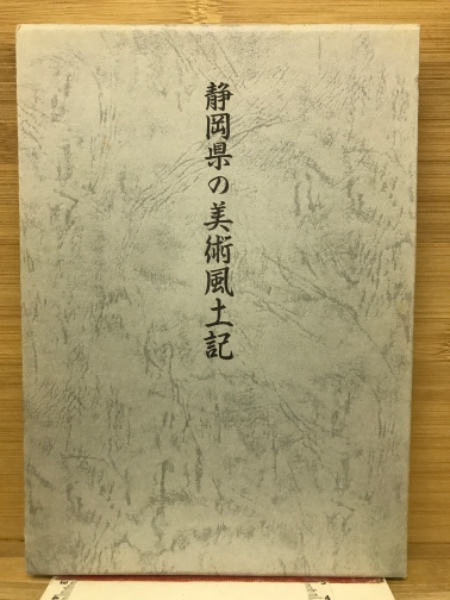 静岡県の美術風土記